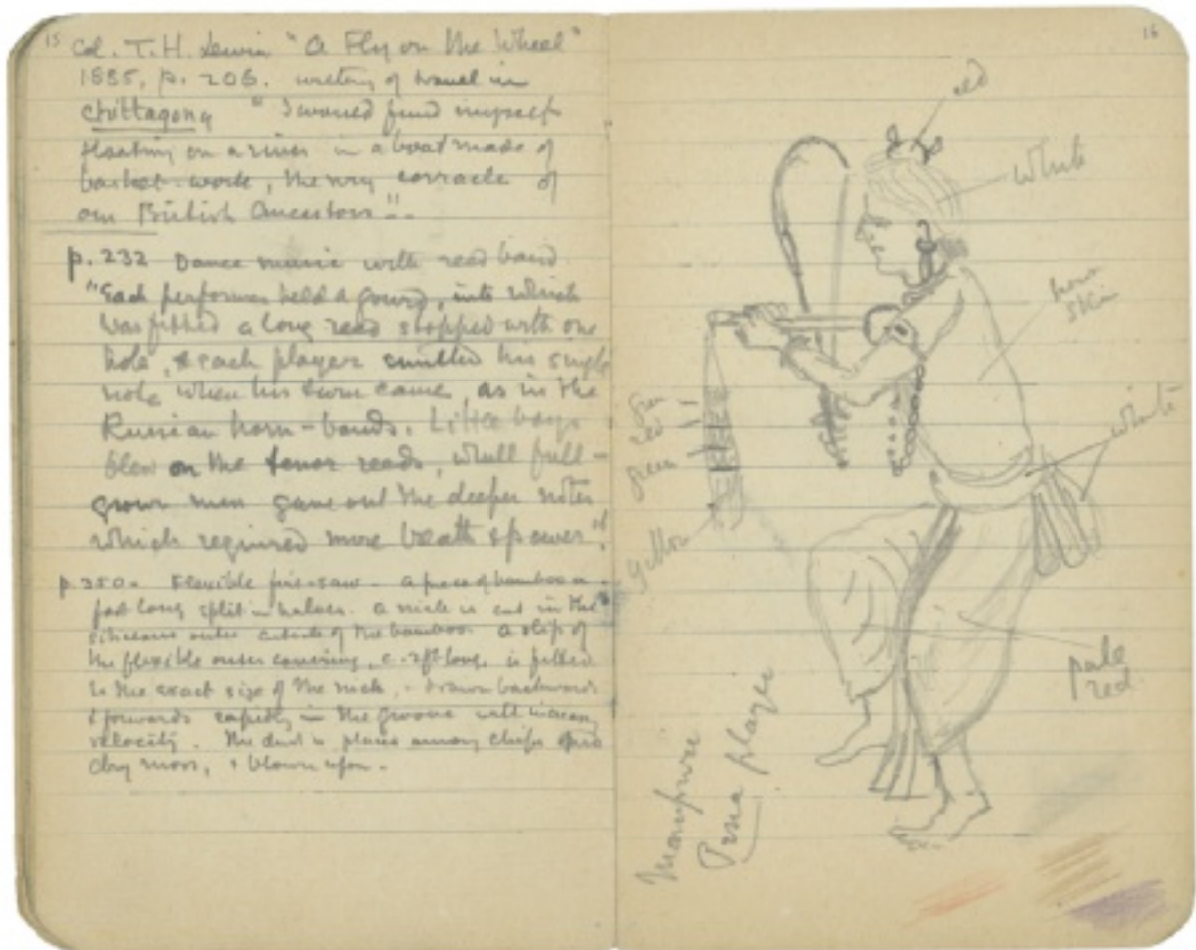 15
Col. T. H. Lewin "A Fly on the Wheel"
1885, p. 206. writing of travel in
Chittagong " I found myself
floating on a river in a boat made of
basket-work, the very corracle of
our British Ancestors".
p. 232 Dance music with reed band
"Each performer held a gourd, into which
was fitted a long reed stopped with one
hole, & each player emitted his single
note when his turn came, as in the
Russian horn-bands. Little boys
blew on the tenor reeds, whill full-
grown men gave out the deeper notes
which required more breath & power".
p. 350. Flexible fire-saw - A piece of bamboo a
foot long split in halves. A nick is cut in the
outside of the bamboo. A slip of
the flexible outer covering, c. 2ft long, is fitted
to the exact size of the nick, & drawn backwards
& forwards rapidly in the groove with increasing
velocity. The dust is placed among chips
dry moss, & blown upon.
16
red
white
skin
white
green
red
green
yellow
pale
red
Manipuri
Pena player